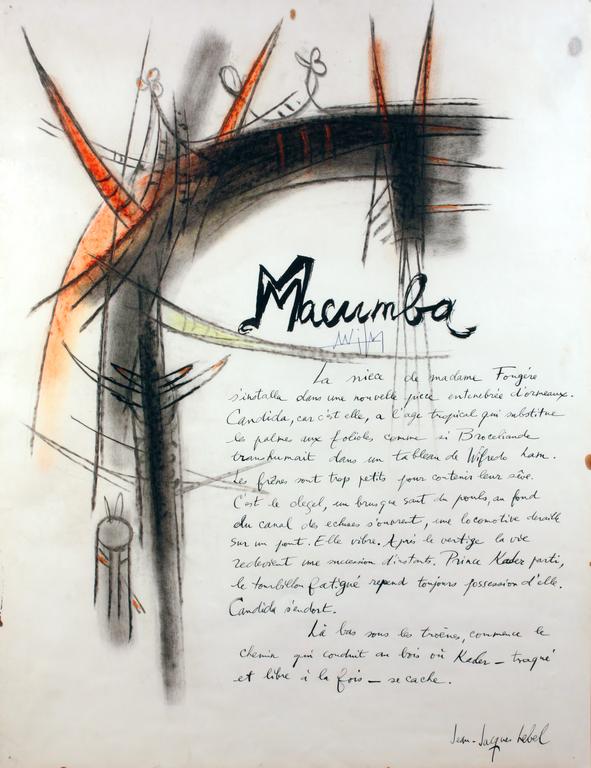 Macumba
La nièce de madame Fougère
s'installa dans une nouvelle pièce entenebrée d'ormeaux.
Candida, car c'est elle, a l'age tropical qui substitue
les palmes aux folioles comme si Broceliande
transhumait dans un tableau de Wifredo Lam.
Les frênes sont trop petits pour contenir leur sève.
C'est le degel, un brusque saut du pouls, au fond
du canal des ecluses s'ouvrent, une locomotive deraille
sur un pont. Elle vibre. Après le vertige la vie
redevient une succession d'instants. Prince Kader parti,
le tourbillon fatigué reprend toujours possession d'elle.
Candida s'endort.
Là bas sous les troënes, commence le
chemin qui conduit au bois où Kader – traqué
et libre à la fois – se cache.
Jean-Jacques Lebel